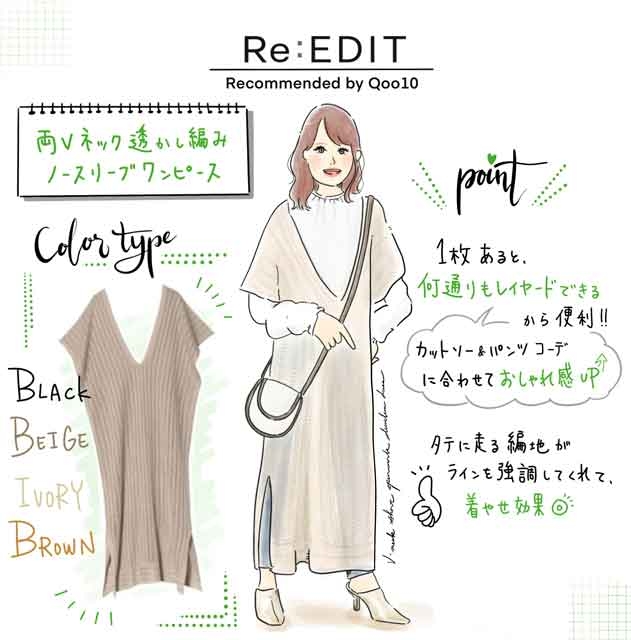 Re:EDIT
Recommended by Qoo10
両Vネック透かし編み
ノースリーブワンピース
Color type
BLACK
BEIGE
IVORY
BROWN
point
1枚あると、
何通りもレイヤードできる
から便利!!
カットソー&パンツコーデ
に合わせておしゃれ感UP↑
タテに走る編地が
ラインを強調してくれて、
着やせ効果◎